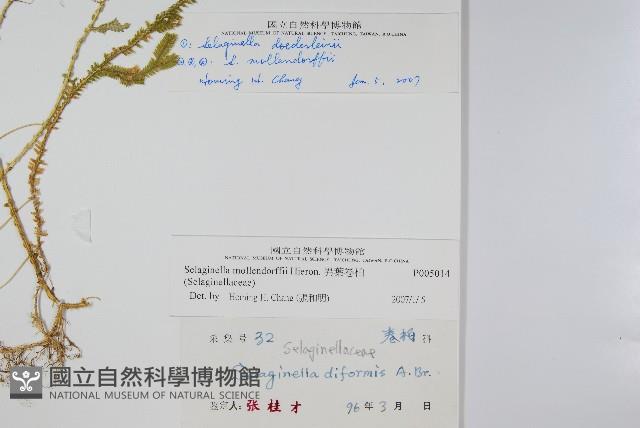 國立自然科學博物館
NATIONAL MUSEUM OF NATURAL SCIENCE, TAICHUNG, TAIWAN, R.O.CHINA
①: Selaginella doederleinii
S. mollendorffii
Homing H. Chang Jan. 5, 2007
國立自然科學博物館
NATIONAL MUSEUM OF NATURAL SCIENCE, TAICHUNG, TAIWAN, R.O.CHINA
Selaginella mollendorffii Hieron. 異葉卷柏 P005014
(Selaginellaceae)
Det. by Homing H. Chang (張和明) 2007/1/5
采集号 32 卷柏 科
Selaginellaceae
Selaginella diformis A.Br.
鉴定人: 张桂才 96年3月 日
國立自然科學博物館
NATIONAL MUSEUM OF NATURAL SCIENCE